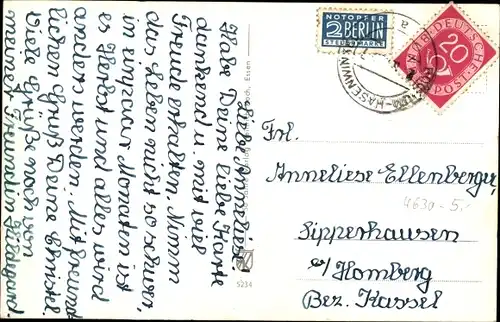 Liebe Anneliese!
Habe Deine liebe Karte
dankend u. mit viel
Freude erhalten. Nimm
das Leben nicht so schwer,
in ein paar Monaten ist
es Herbst und alles wird
anders werden. Mit freund
lichen Grüß Deine Christel.
Viele Grüße noch von
meiner Freundin Hildegard.
Essen
5234
NOTOPFER
2 BERLIN
STEUERMARKE
DEUTSCHE
20
POST
HASENW
Frl.
Anneliese Ellenberger,
Sipperhausen
bz/Homberg
Bez. Kassel
4630 - 5,-